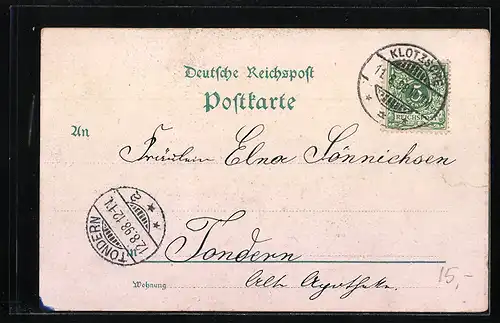 KLOTZSCHE
Deutsche Reichspost
Postkarte
An
Fräulein Elna Sönnichsen
TONDERN
12.8.98.12-1N.
in Tondern
Wohnung Alte Apotheke.
15,-